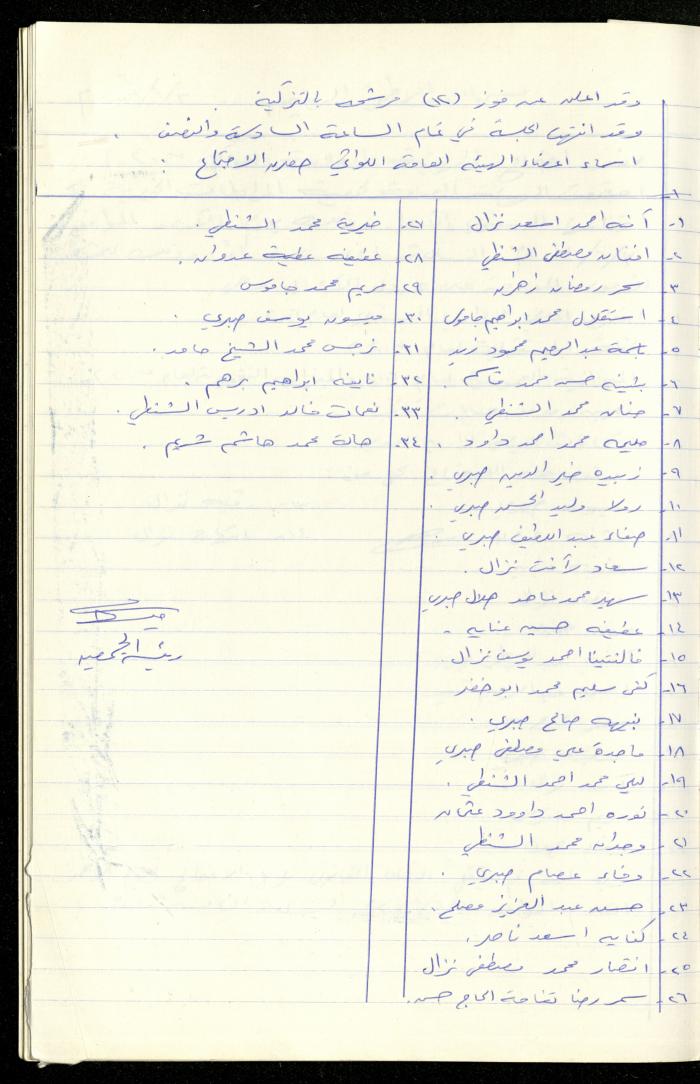 وقد اعلن عن فوز (١٢) مرشحه بالتزكية .
وقد انتهت الجلسة في تمام الساعة السادسة والنصف .
اسماء اعضاء الهيئه العامة اللواتي حضرن الاجتماع :
١- آمنه احمد اسعد نزال
٢- افنان مصطفى الشنطي
٣- سحر رمضان زهران
٤- استقلال محمد ابراهيم جاموس
٥- باسمة عبد الرحيم محمود زيد
٦- بثينه حسن محمد قاسم .
٧- حنان محمد الشنطي .
٨- حليمه محمد احمد داود .
٩- زبيده خير الدين صبري .
١٠- رولا وليد الحسن صبري .
١١- صفاء عبد اللطيف صبري .
١٢- سعاد رأفت نزال .
١٣- سهير محمد عاهد هلال صبري
١٤- عفيفه حسين عنايه .
١٥- فالنتينا احمد يوسف نزال .
١٦- كفى سليم محمد ابو خضر
١٧- بنيهه صالح صبري .
١٨- ماجدة علي مصطفى صبري
١٩- ليلى محمد احمد الشنطي .
٢٠- نوره احمد داوود عثمان
٢١- وجدان محمد الشنطي
٢٢- وفاء عصام صبري .
٢٣- حسن عبد العزيز مصلح .
٢٤- كفايه اسعد ناصر .
٢٥- انتصار محمد مصطفى نزال
٢٦- سمر رضا تفاحة الحاج حسن .
٢٧- خيرية محمد الشنطي .
٢٨- عفيفه عطية عدوان .
٢٩- مريم محمد جاموس
٣٠- ميسون يوسف صبري .
٣١- نرجس محمد الشيخ حامد .
٣٢- نايفه ابراهيم برهم .
٣٣- نعمات خالد ادريس الشنطي .
٣٤- هالة محمد هاشم شريم .
رئيسة الجمعيه